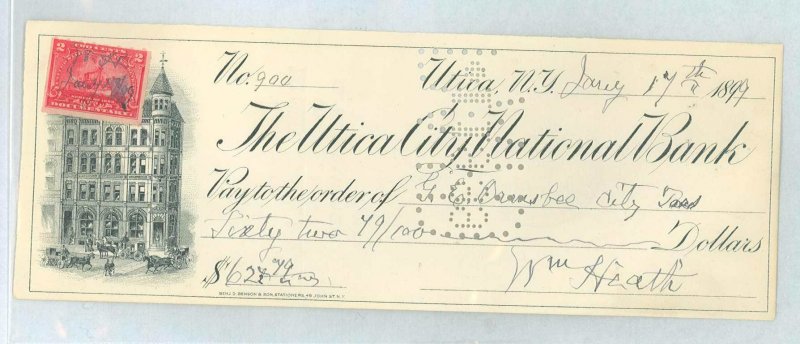 TWO CENTS
2 2
DOCUMENTARY
No. 900 Utica, N.Y. Jany 17th 1899
The Utica City National Bank
Pay to the order of G. E. City
Sixty two 79/100 Dollars
$62 79
Wm Heath
BENJ. D. BENSON & SON, STATIONERS, 49 JOHN ST. N.Y.